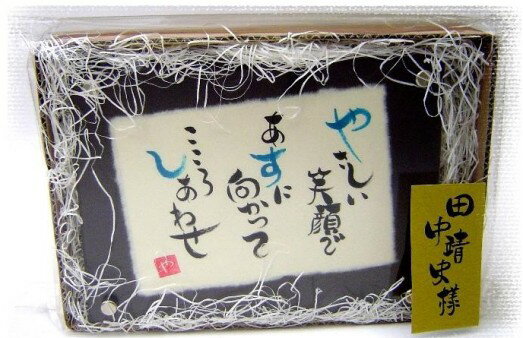 やさしい
笑顔で
あすに
向かって
こころ
しあわせ
や
田中靖史様